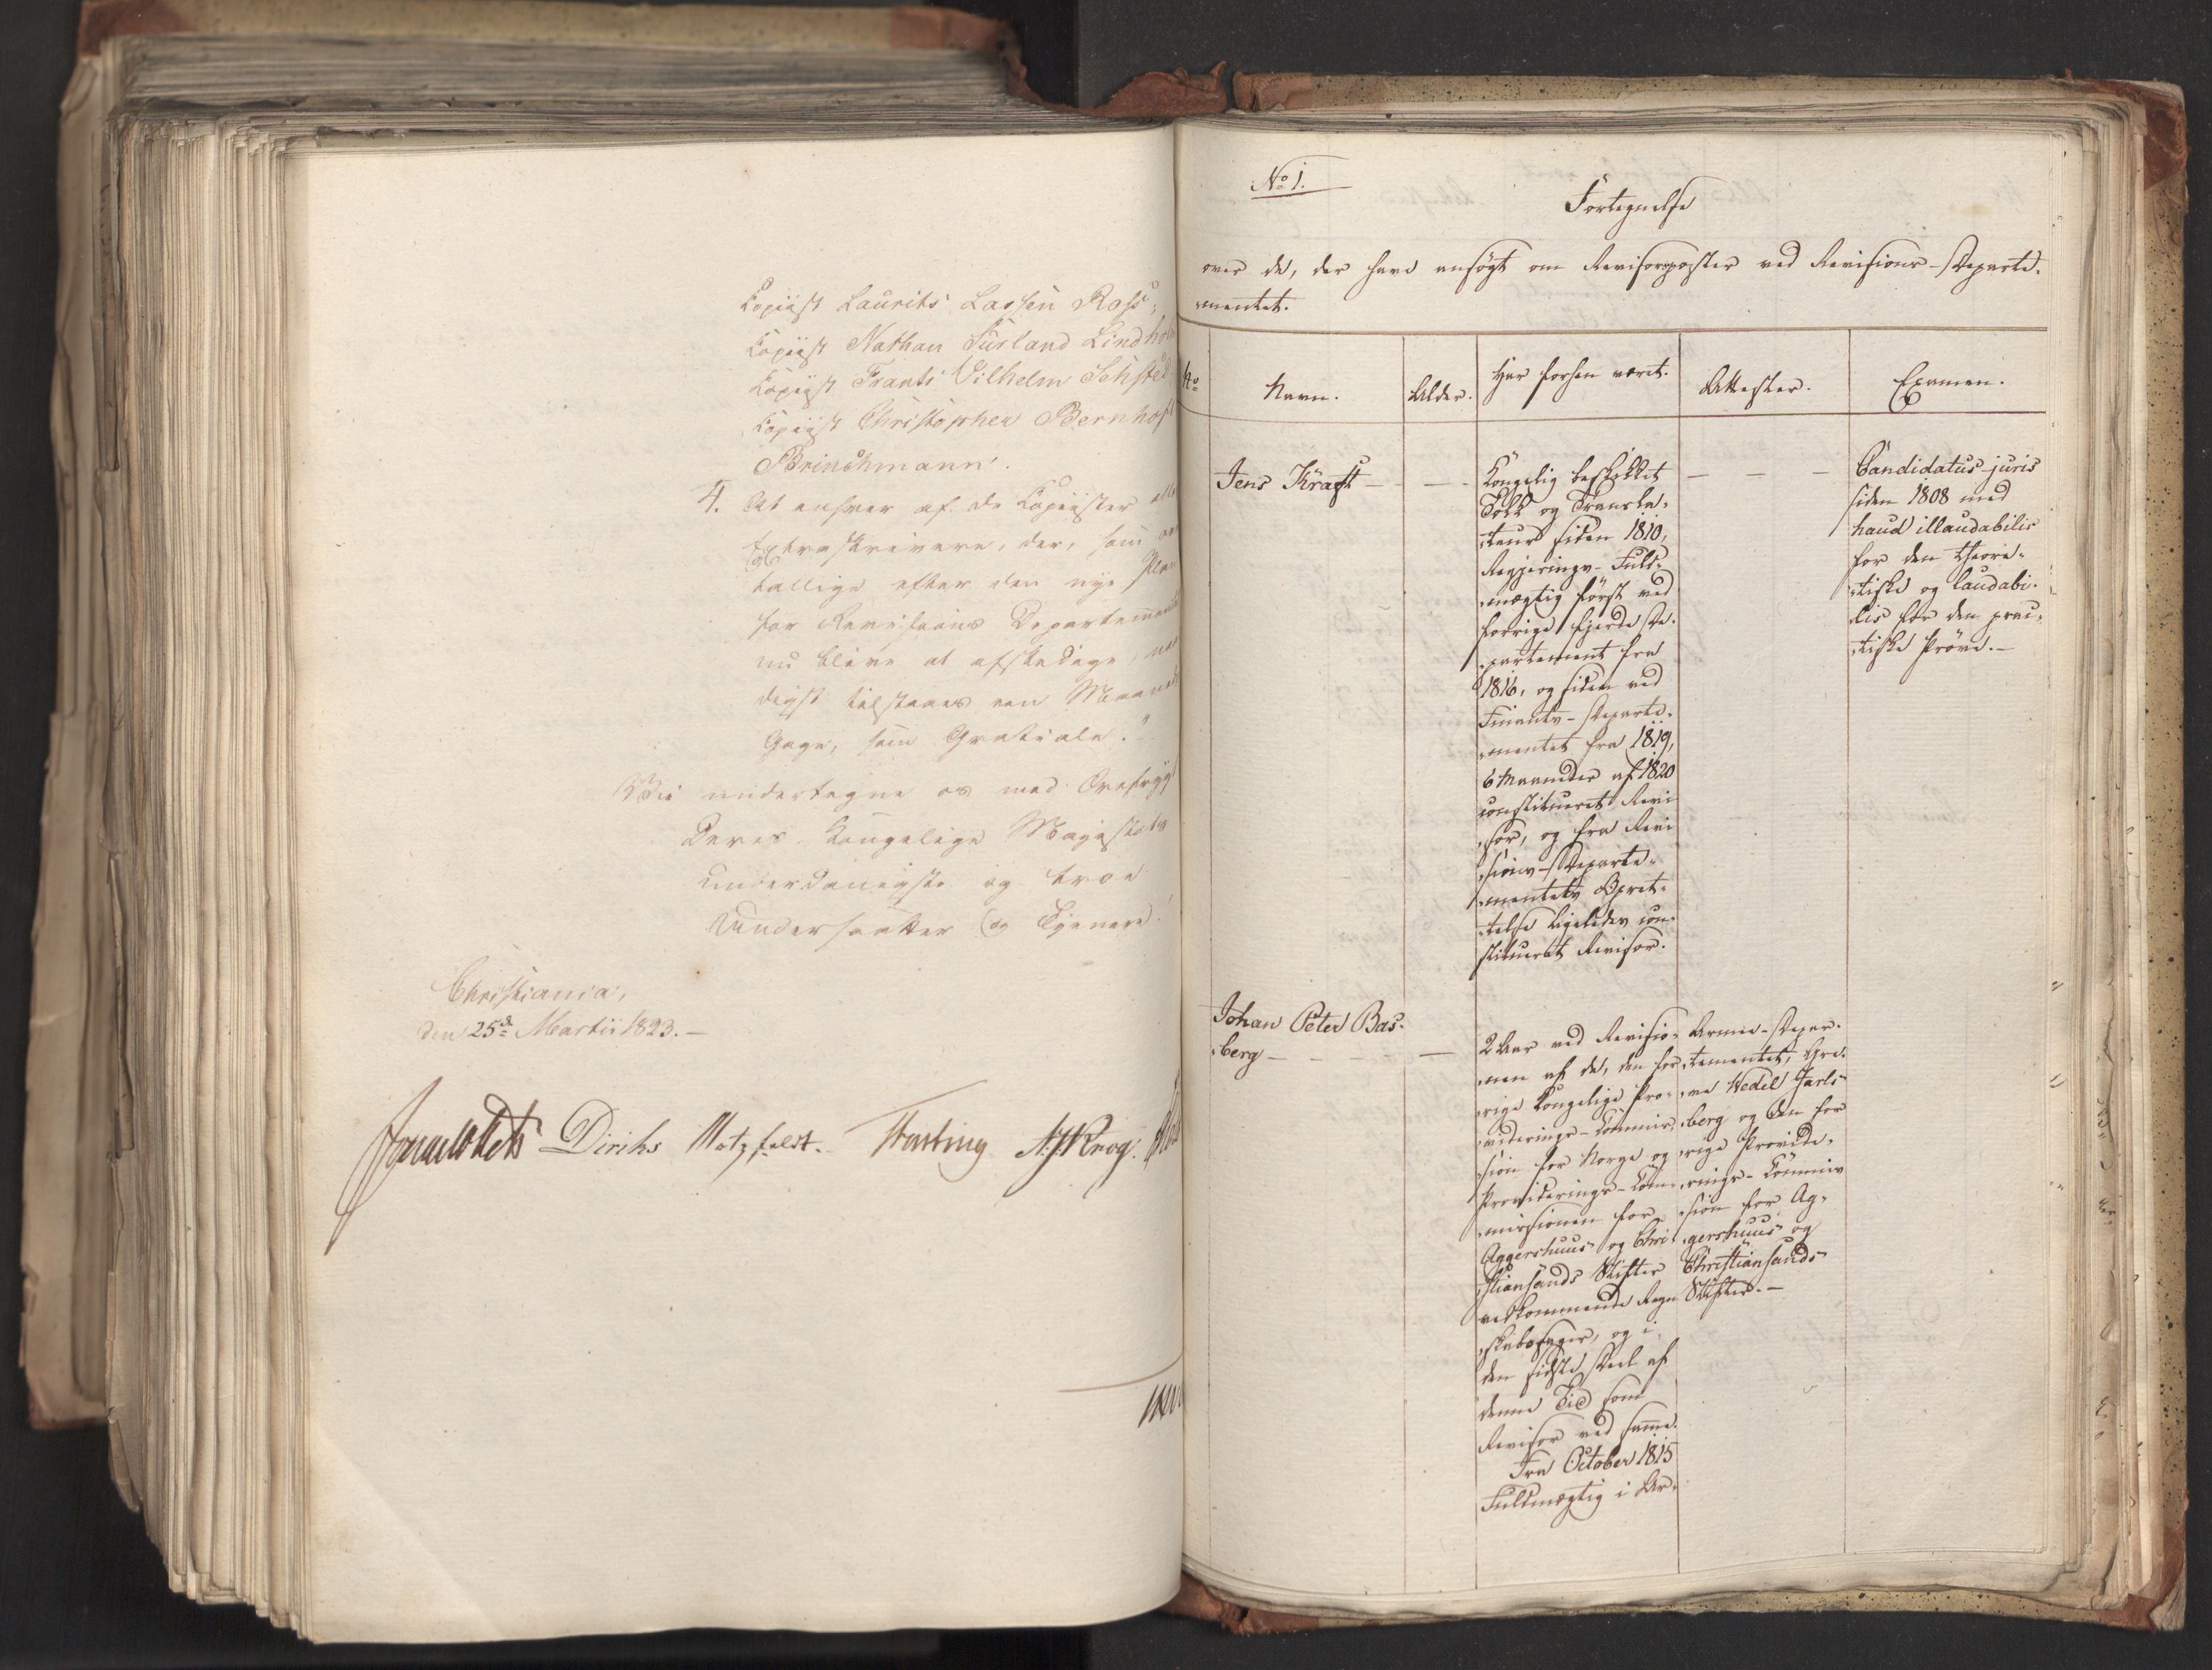 Copiist Laurits Lassen Ross,
Copiist Nathan Surland Lindhol
Copiist Frants Vilhelm
Copiist Christopher Bernhoft
Brinchmann.
4. At enhver af de Copiister
Extraskrivere, der, som
tallige efter den nye Plan
for Revisions Departement
nu blive at afskedige,
digst tilstaaes een Maaneds
Gage, som Gratiale."
Vi undertegne os med
Deres Kongelige Majestæts
underdanigste og troe
Undersaatter og Tjenere.
Christiania,
den 25de Martii 1823. —
Diriks Motzfeldt. Fasting
No 1.
Fortegnelse
over de, der have ansøgt om Revisorposter ved Revisions-Departe-
mentet.
No Navn. Alder. Har forhen været. Attester. Examen.
Jens Kraft — — —
Kongelig beskikket
Tolk og Transla-
teur siden 1810,
Regjerings-Fuld-
mægtig først ved
forrige fjerde De-
partement fra
1816, og siden ved
Finants-Departe-
mentet fra 1819,
6 Maaneder af 1820
constitueret Revi
sor, og fra Revi
sions-Departe-
mentets Opret-
telse ligeledes con-
stitueret Revisor.
— — —
Candidatus juris
siden 1808 med
haud illaudabilis
for den theore-
tiske og laudabi-
lis for den prac-
tiske Prøve. —
Johan Peter Bas-
berg — — — — —
2 Aar ved Revisio-
nen af de, den for-
rige Kongelige Pro-
viderings-Commis-
sion for Norge og
Providerings-Com-
missionen for
Aggershuus og Chri-
stiansands Stifter
vedkommende Regn
skabssager, og i
den sidste Deel af
denne Tid som
Revisor ved samme.
Fra October 1815
Fuldmægtig i Ar-
Armee-Depar-
tementet, Gre-
ve Wedel Jarls-
berg og den for
rige Provide-
rings-Commis
sion for Ag-
gershuus og
Christiansands
Stifter. —